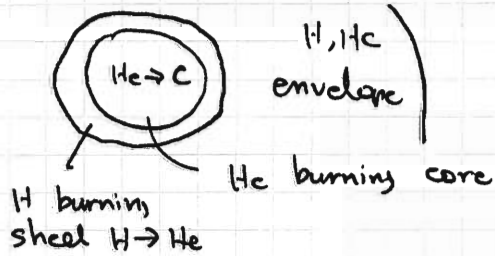 H, He
envelope
He → C
He burning core
H burning
sheel H → He